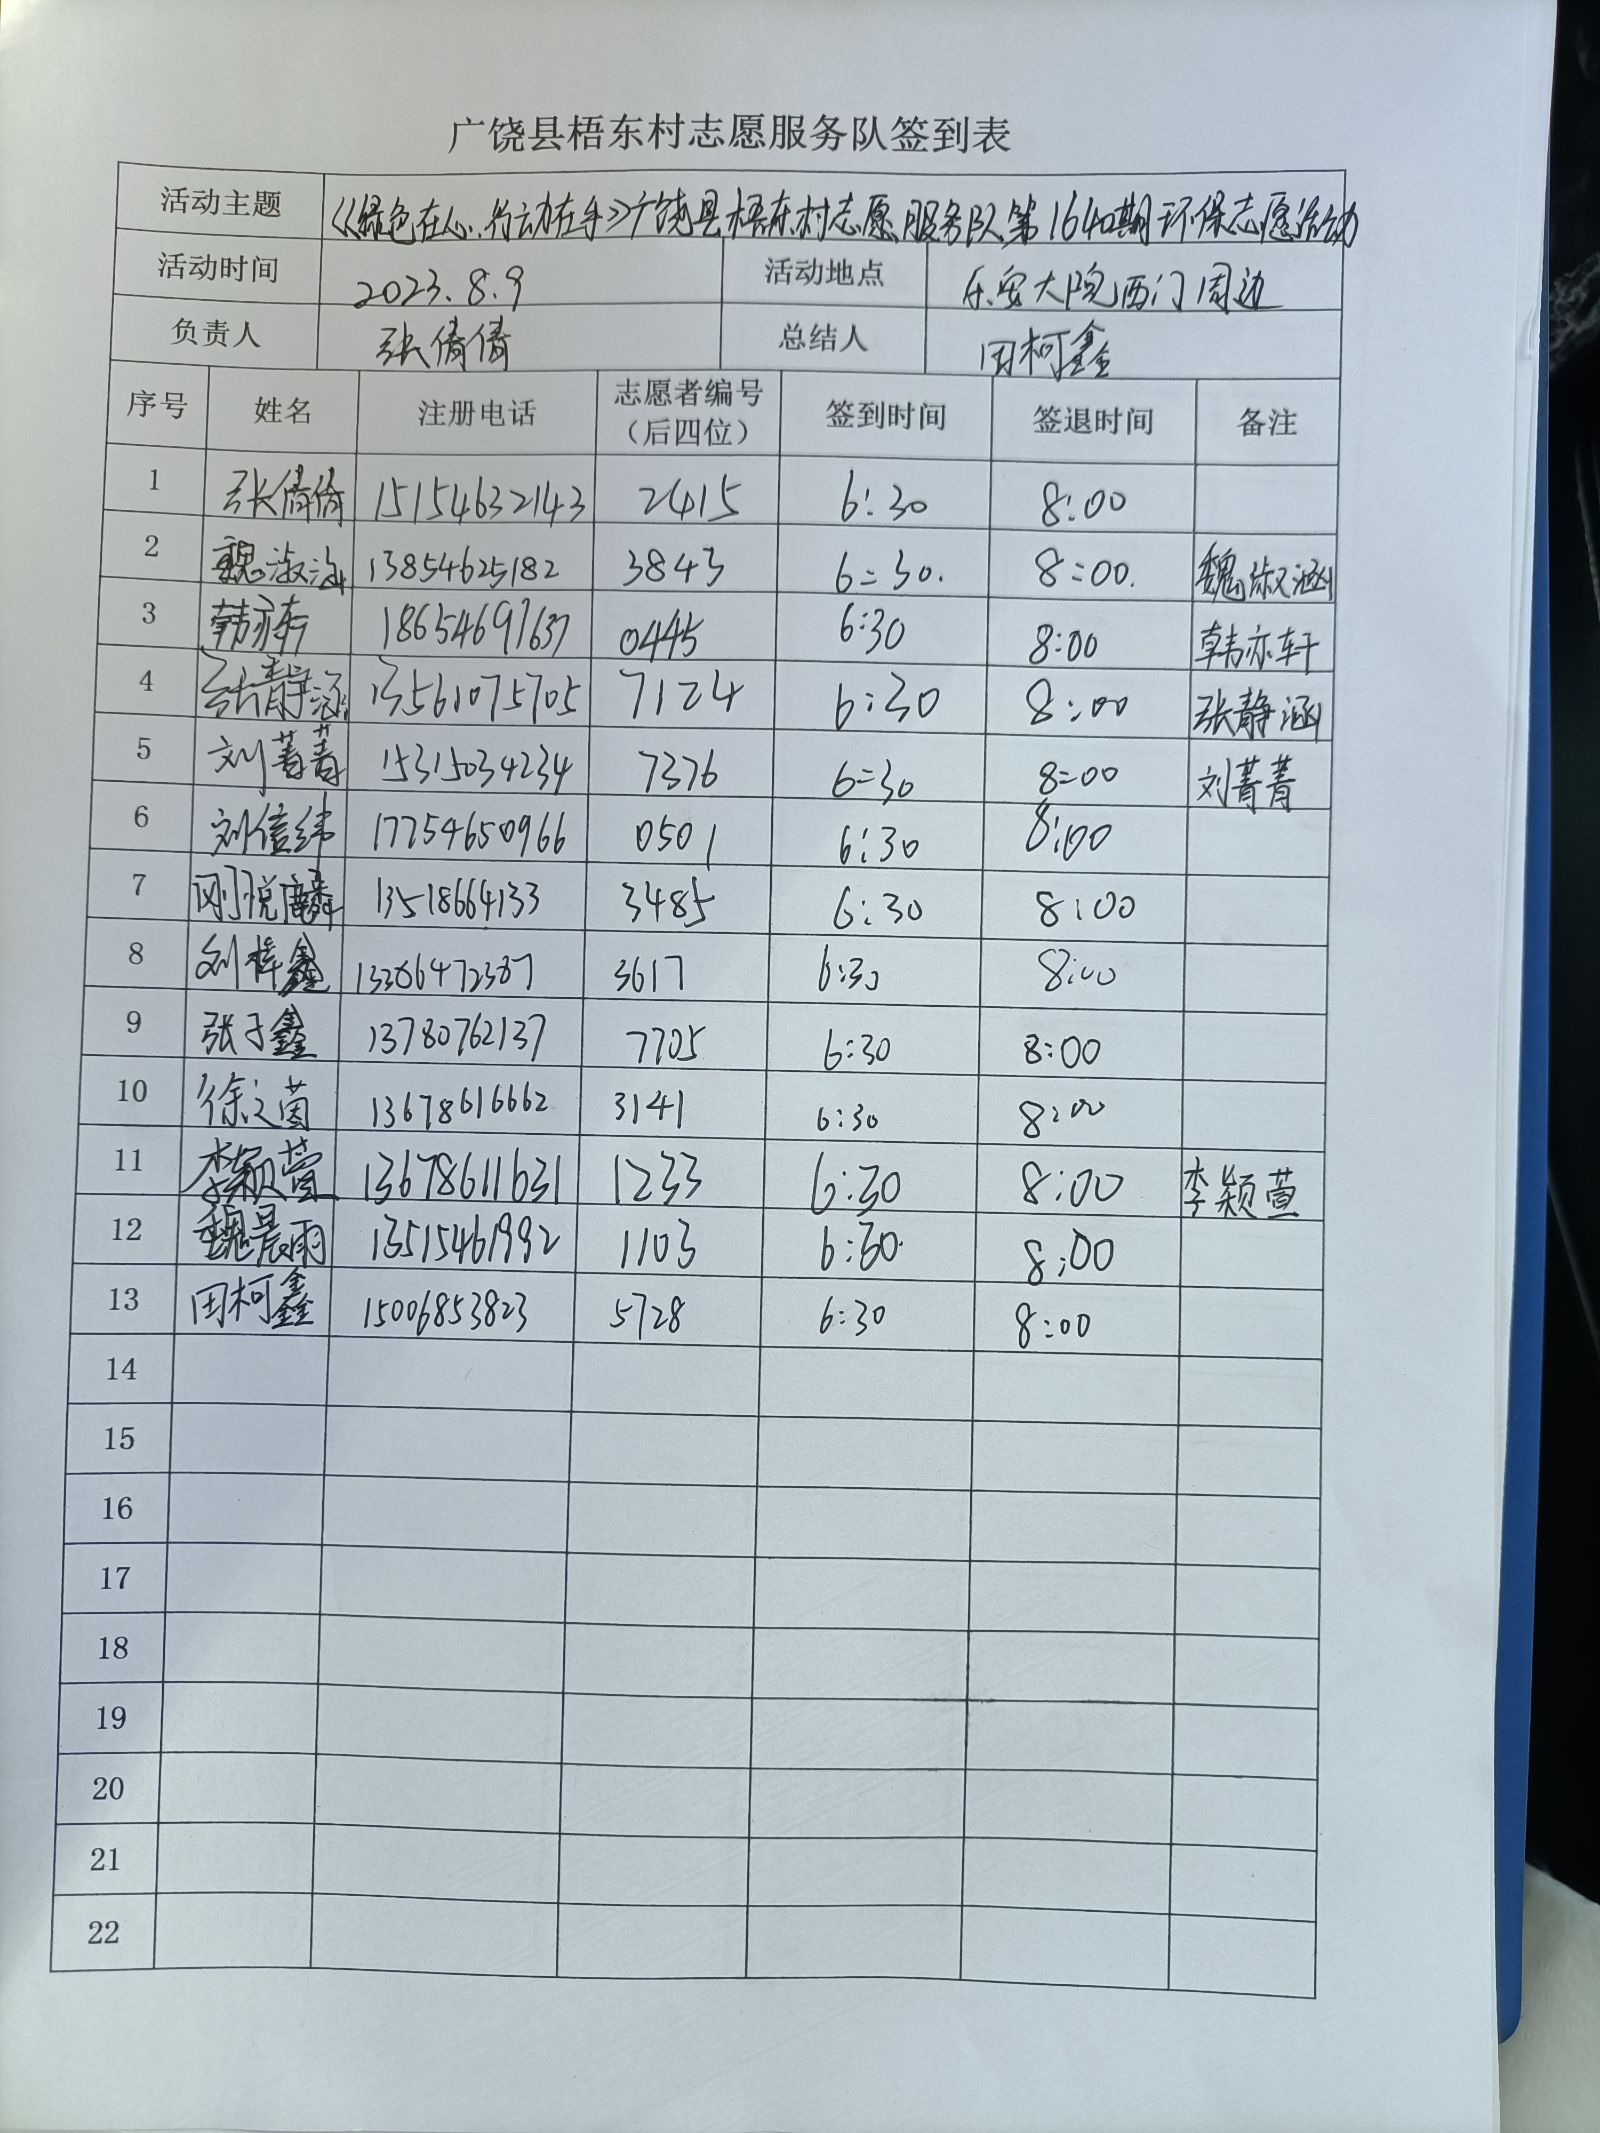 广饶县梧东村志愿服务队签到表
活动主题 《绿色在心,行动在手》广饶县梧东村志愿服务队第1640期环保志愿活动
活动时间 2023.8.9 活动地点 乐安大院西门周边
负责人 张倩倩 总结人 田柯鑫
序号 姓名 注册电话 志愿者编号（后四位） 签到时间 签退时间 备注
1 张倩倩 15154632143 2415 6:30 8:00
2 魏淑涵 13854625182 3843 6:30. 8:00. 魏淑涵
3 韩亦轩 18654691637 0445 6:30 8:00 韩亦轩
4 张静涵 13561075705 7124 6:30 8:00 张静涵
5 刘菁菁 15315034234 7376 6:30 8:00 刘菁菁
6 刘信纬 17754650966 0501 6:30 8:00
7 刚悦麟 13518664133 3485 6:30 8:00
8 刘梓鑫 3617 6:30 8:00
9 张子鑫 13780762137 7705 6:30 8:00
10 徐文茵 13678616662 3141 6:30 8:00
11 李颖萱 13678611631 1233 6:30 8:00 李颖萱
12 魏晨雨 13515461992 1103 6:30 8:00
13 田柯鑫 15006853823 5728 6:30 8:00
14
15
16
17
18
19
20
21
22